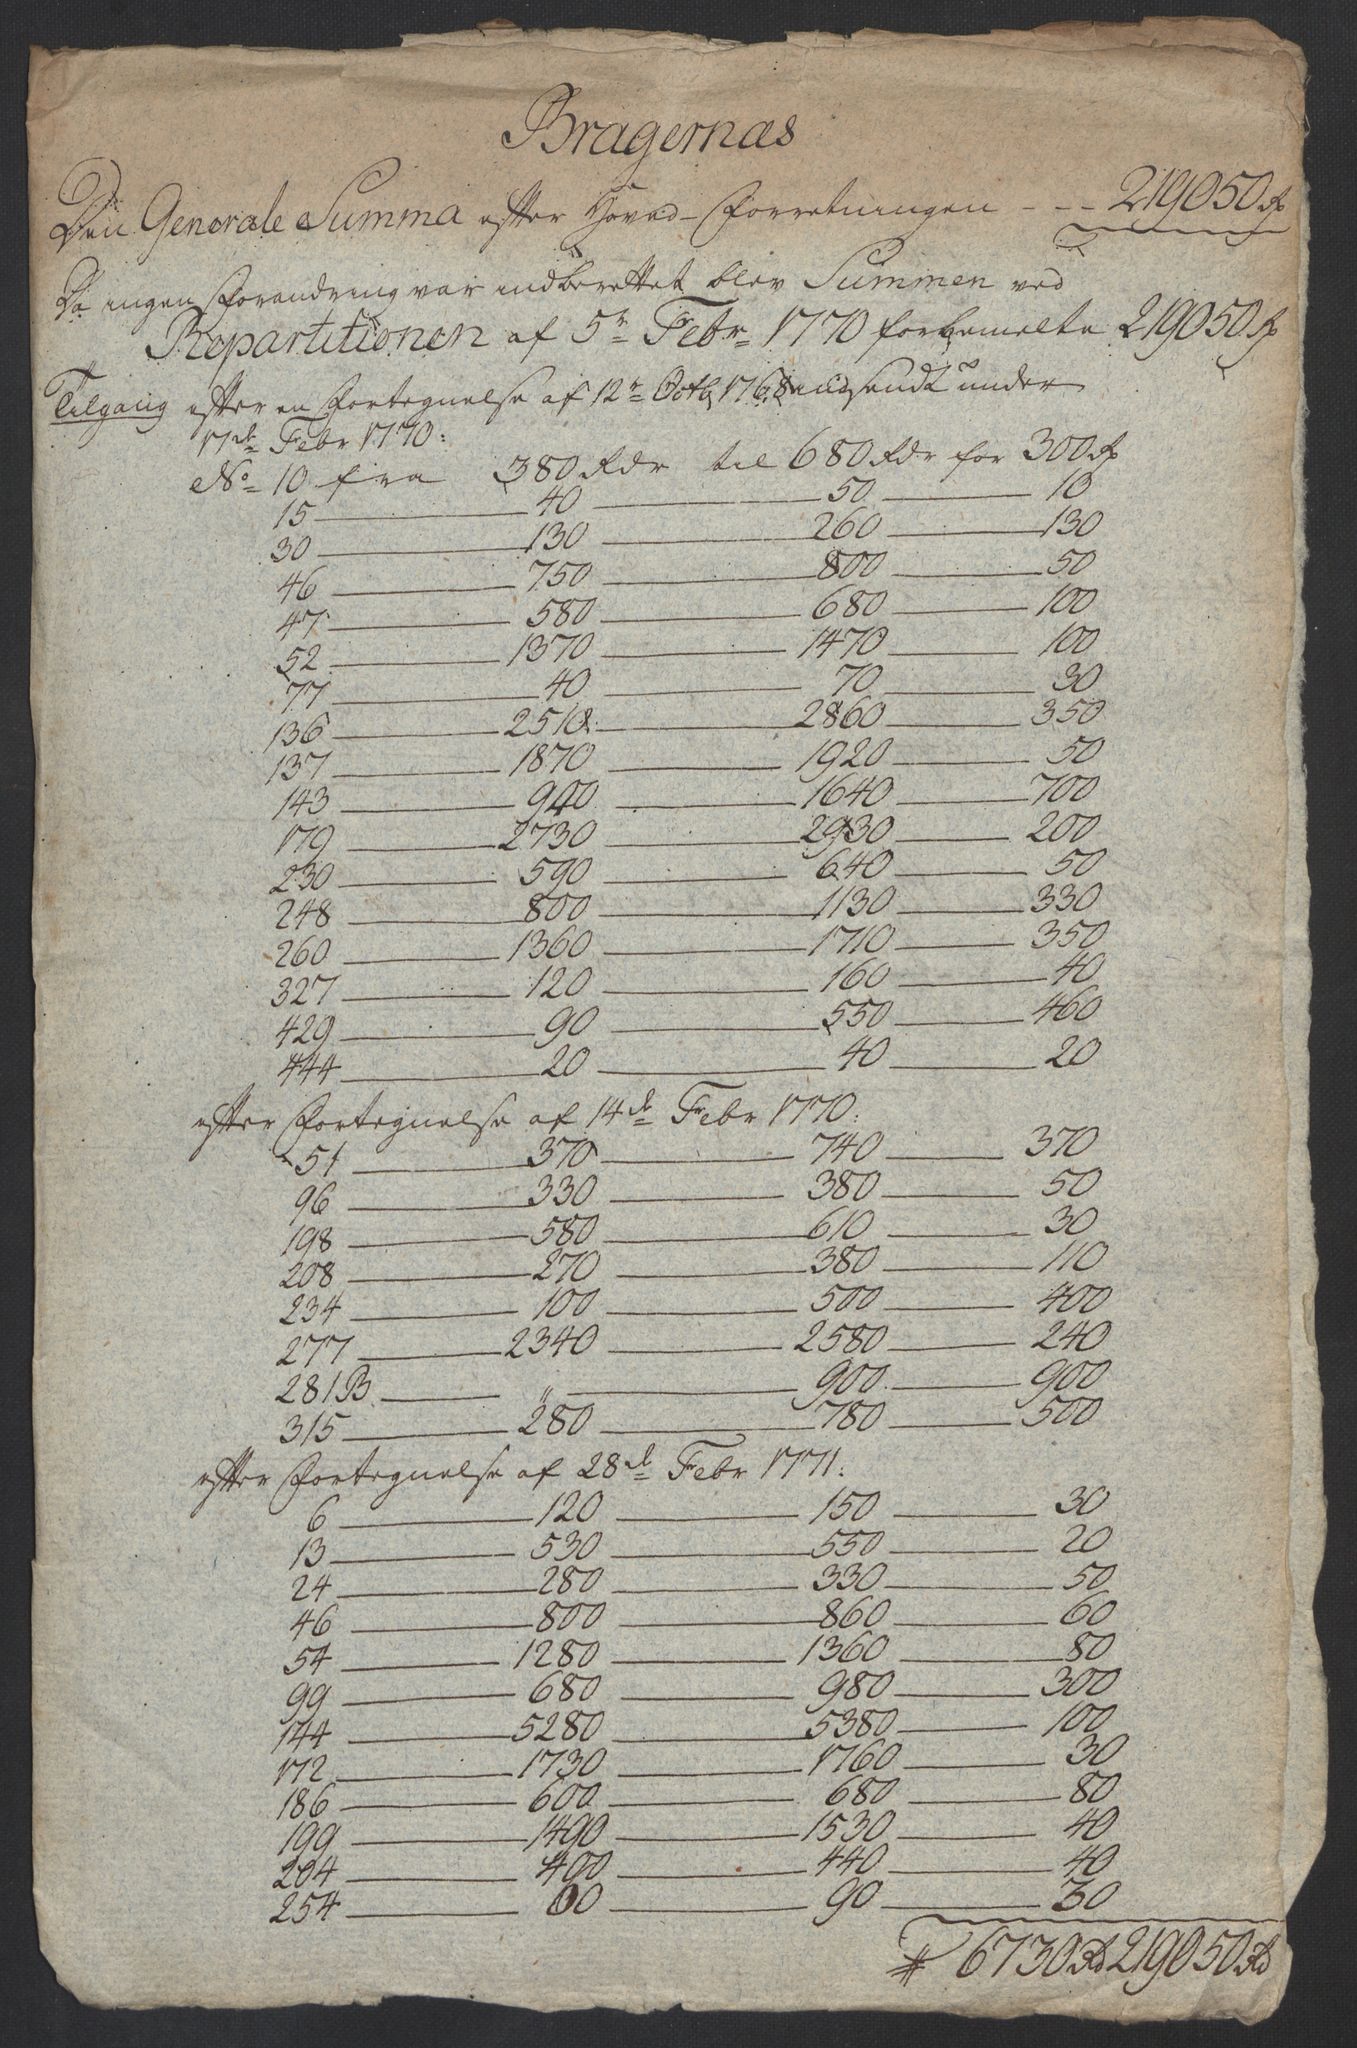 Bragernæs
Den Generale Summa efter Hoved-Forretningen - - - 219050 Rd
Da ingen Forandring var indberettet blev Summen ved
Repartitionen af 5te Febr 1770 forbemelte 219050 Rd
Tilgang efter en Fortegnelse af 12te Octb 1768 indsendt under
17de Febr 1770:
No 10 fra 380 Rdr til 680 Rdr for 300 Rd
15 — 40 — 50 — 10
30 — 130 — 260 — 130
46 — 750 — 800 — 50
47 — 580 — 680 — 100
52 — 1370 — 1470 — 100
77 — 40 — 70 — 30
136 — 2510 — 2860 — 350
137 — 1870 — 1920 — 50
143 — 940 — 1640 — 700
179 — 2730 — 2930 — 200
230 — 590 — 640 — 50
248 — 800 — 1130 — 330
260 — 1360 — 1710 — 350
327 — 120 — 160 — 40
429 — 90 — 550 — 460
444 — 20 — 40 — 20
efter Fortegnelse af 14de Febr 1770:
51 — 370 — 740 — 370
96 — 330 — 380 — 50
198 — 580 — 610 — 30
208 — 270 — 380 — 110
234 — 100 — 500 — 400
277 — 2340 — 2580 — 240
281B — " — 900 — 900
315 — 280 — 780 — 500
efter Fortegnelse af 28de Febr 1771:
6 — 120 — 150 — 30
13 — 530 — 550 — 20
24 — 280 — 330 — 50
46 — 800 — 860 — 60
54 — 1280 — 1360 — 80
99 — 680 — 980 — 300
144 — 5280 — 5380 — 100
172 — 1730 — 1760 — 30
186 — 600 — 680 — 80
199 — 1490 — 1530 — 40
204 — 400 — 440 — 40
254 — 60 — 90 — 30
6730 Rd 219050 Rd